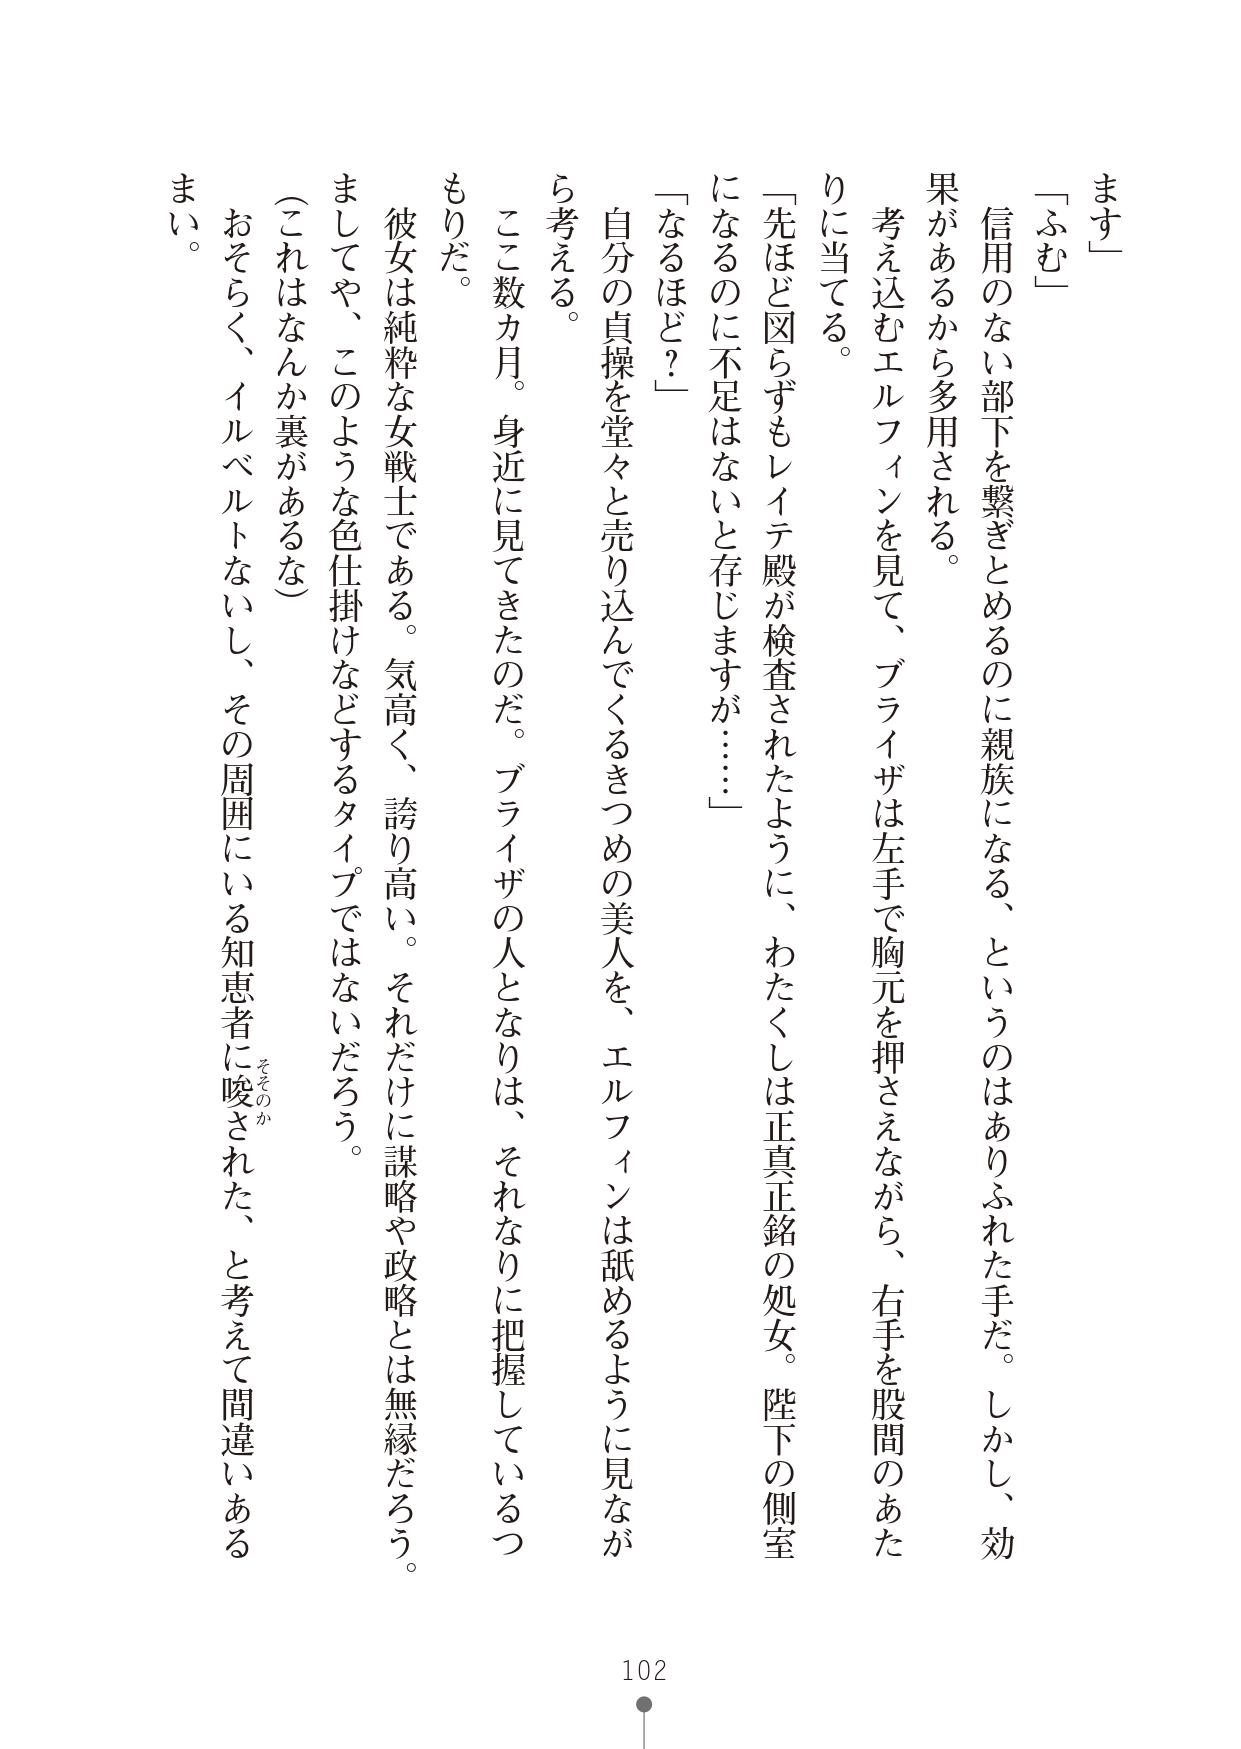 ます」
「ふむ」
　信用のない部下を繋ぎとめるのに親族になる、というのはありふれた手だ。しかし、効
果があるから多用される。
　考え込むエルフィンを見て、ブライザは左手で胸元を押さえながら、右手を股間のあた
りに当てる。
「先ほど図らずもレイテ殿が検査されたように、わたくしは正真正銘の処女。陛下の側室
になるのに不足はないと存じますが……」
「なるほど？」
　自分の貞操を堂々と売り込んでくるきつめの美人を、エルフィンは舐めるように見なが
ら考える。
　ここ数カ月。身近に見てきたのだ。ブライザの人となりは、それなりに把握しているつ
もりだ。
　彼女は純粋な女戦士である。気高く、誇り高い。それだけに謀略や政略とは無縁だろう。
ましてや、このような色仕掛けなどするタイプではないだろう。
（これはなんか裏があるな）
　おそらく、イルベルトないし、その周囲にいる知恵者に唆された、と考えて間違いある
そそのか
まい。
102